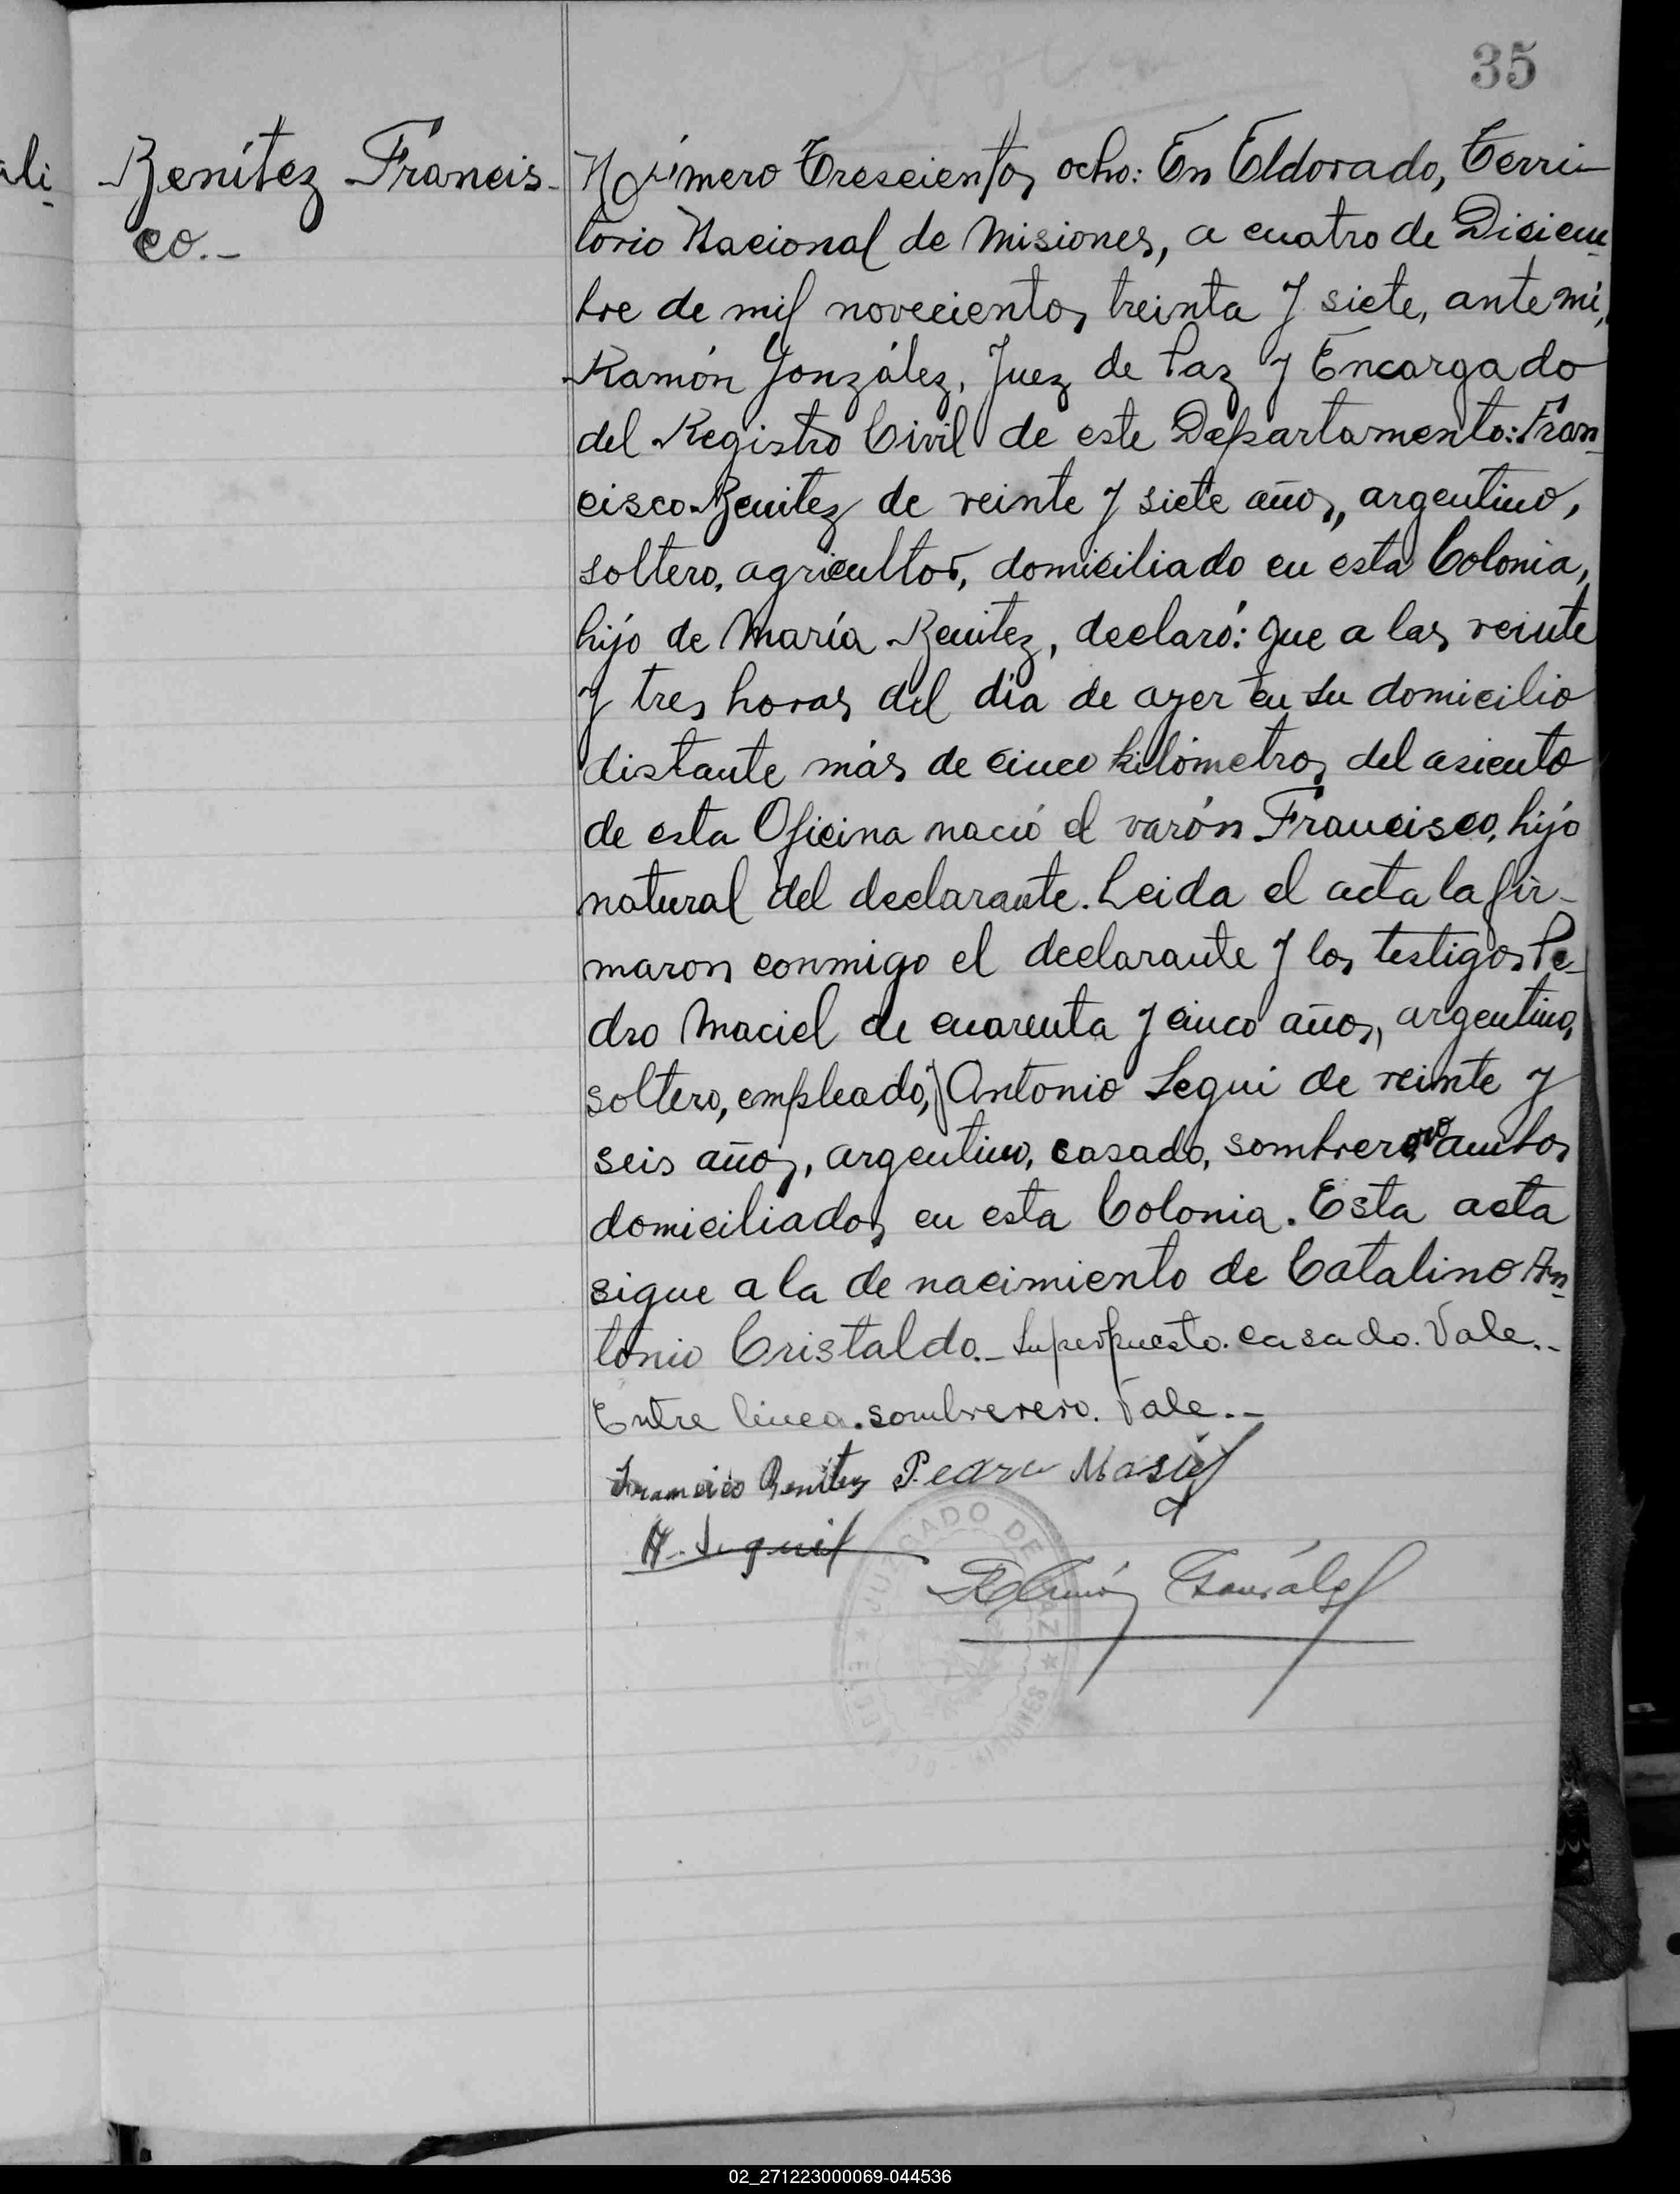 35
ali-
Benítez Francis-
co.-
Número Trescientos ocho: En Eldorado, Terri-
torio Nacional de Misiones, a cuatro de Diciem-
bre de mil novecientos treinta y siete, ante mí,
Ramón González, Juez de Paz y Encargado
del Registro Civil de este Departamento: Fran-
cisco Benitez de veinte y siete años, argentino,
soltero, agricultor, domiciliado en esta Colonia,
hijo de María Benitez, declaró: que a las veinte
y tres horas del día de ayer en su domicilio
distante más de cinco kilómetros del asiento
de esta Oficina nació el varón Francisco, hijo
natural del declarante. Leida el acta la fir-
maron conmigo el declarante y los testigos Pe-
dro Maciel de cuarenta y cinco años, argentino,
soltero, empleado, y Antonio Segui de veinte y
seis años, argentino, casado, sombrerero ambos
domiciliados en esta Colonia. Esta acta
sigue a la de nacimiento de Catalino An-
tonio Cristaldo.- Superpuesto. casado. Vale.-
Entre linea. sombrerero. Vale.-
Francisco Benitez Pedro Masiel
A. Segui
Ramón González
JUZGADO DE PAZ
MISIONES
02_271223000069-044536